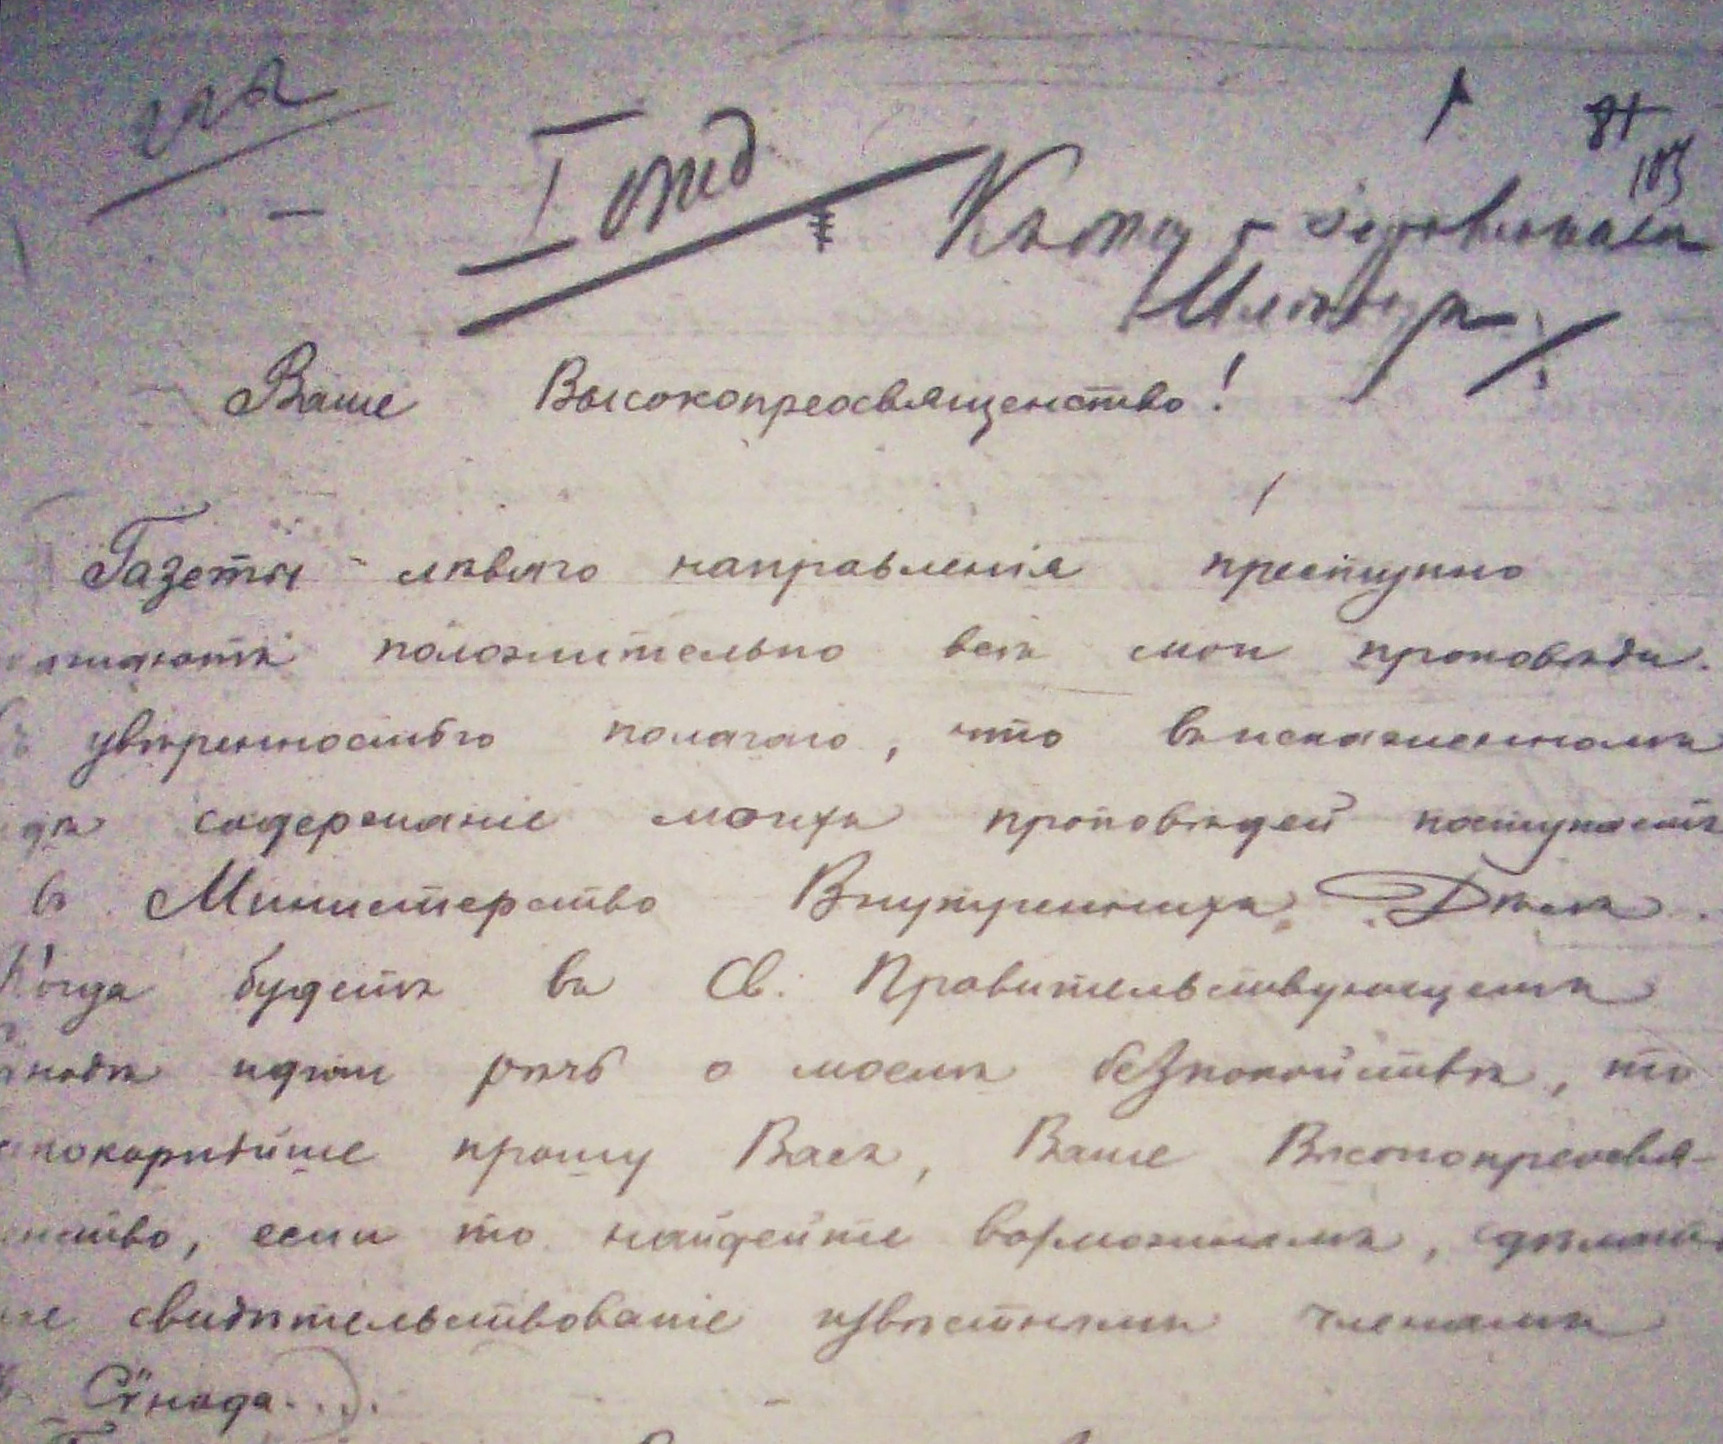 I отд
Ваше Высокопреосвященство!
Газеты лѣваго направленія преступно
положительно всѣ мои проповѣди.
увѣренностью полагаю, что въ искаженномъ
содержаніе моихъ проповѣдей поступаетъ
въ Министерство Внутреннихъ Дѣлъ.
Когда будетъ въ Св. Правительствующемъ
идти рѣчь о моемъ безпокойствѣ, то
прошу Васъ, Ваше Высокопреосвя-
если то найдете возможнымъ,
свидѣтельствованіе извѣстными членамъ
Сѵнода...).